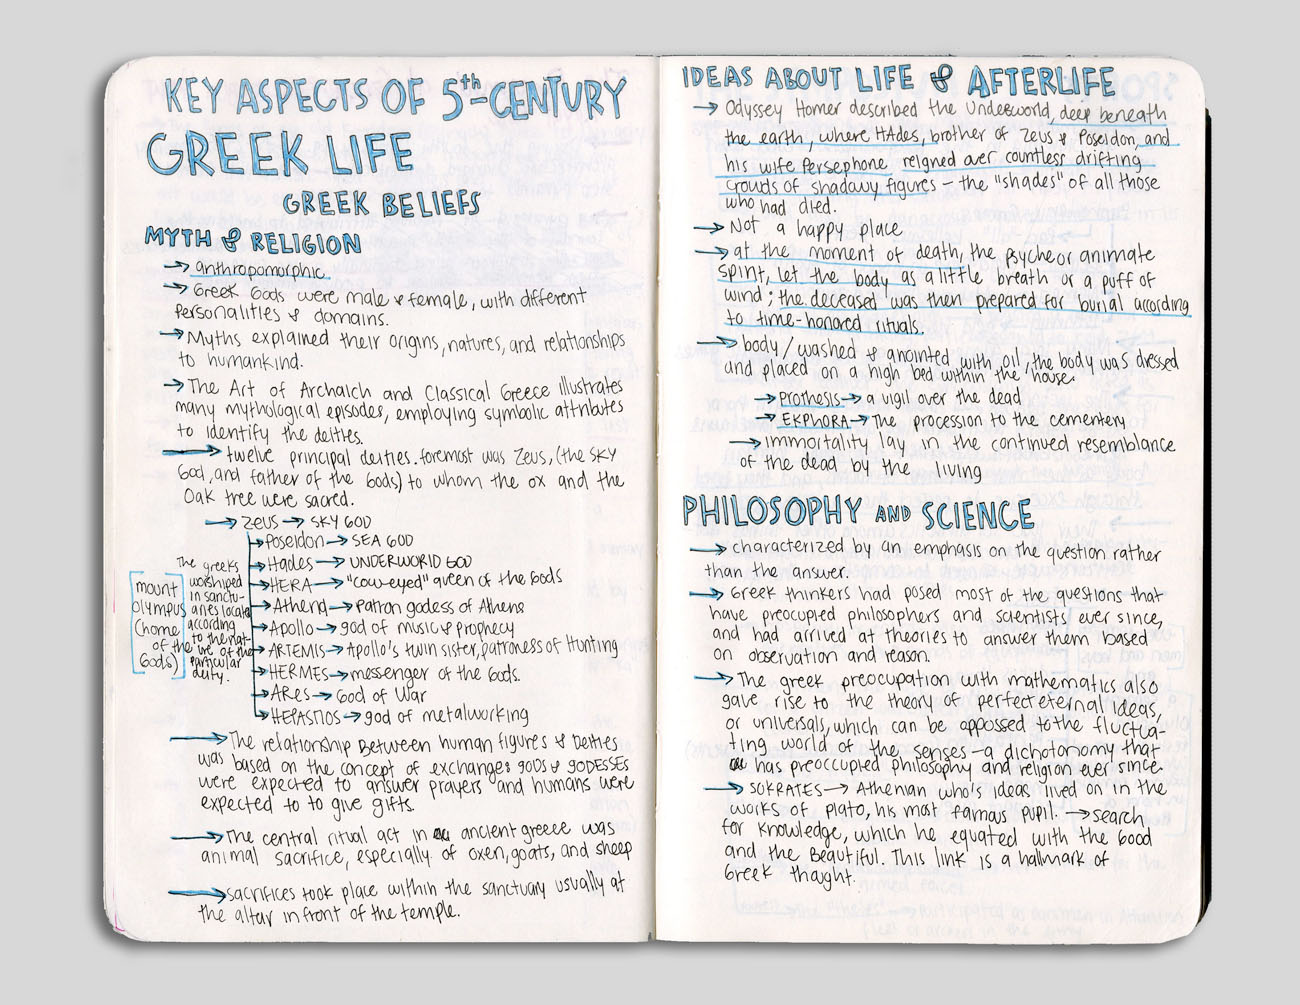 KEY ASPECTS OF 5th-CENTURY
GREEK LIFE
GREEK BELIEFS
MYTH & RELIGION
→ anthropomorphic.
→ Greek Gods were male & female, with different
personalities & domains.
→ Myths explained their origins, natures, and relationships
to humankind.
→ The Art of Archaich and Classical Greece illustrates
many mythological episodes, employing symbolic attributes
to identify the deities.
→ twelve principal deities. foremost was Zeus, (the SKY
God, and father of the Gods) to whom the ox and the
Oak tree were sacred.
→ Zeus → SKY GOD
→ Poseidon → SEA GOD
→ Hades → UNDERWORLD GOD
→ HERA → "cow-eyed" queen of the Gods
→ Athena → Patron godess of Athens
→ Apollo → god of music & prophecy
→ ARTEMIS → Apollo's twin sister, patroness of Hunting
→ HERMES → messenger of the Gods.
→ ARes → God of War
→ HEPASTIOS → god of metalworking
The greeks
worshiped
in sanctu-
aries locatd
according
to the nat-
ure of the
particular
deity.
[mount
olympus
(home
of the
Gods)]
→ The relationship Between human figures & Deities
was based on the concept of exchange: gods & godesses
were expected to answer prayers and humans were
expected to to give gifts.
→ The central ritual act in ancient greece was
animal sacrifice, especially of oxen, goats, and sheep
→ sacrifices took place within the sanctuary usually at
the altar infront of the temple.
IDEAS ABOUT LIFE & AFTERLIFE
→ Odyssey Homer described the Underworld, deep beneath
the earth, where HAdes, brother of Zeus & Poseidon, and
his wife Persephone reigned over countless drifting
crowds of shadowy figures – the "shades" of all those
who had died.
→ Not a happy place
→ at the moment of death, the psyche or animate
spirit, let the body as a little breath or a puff of
wind; the deceased was then prepared for burial according
to time-honored rituals.
→ body/washed & anointed with oil, the body was dressed
and placed on a high bed within the house.
→ Prothesis → a vigil over the dead
→ EKPHORA → The procession to the cementery
→ immortality lay in the continued resemblance
of the dead by the living
PHILOSOPHY AND SCIENCE
→ characterized by an emphasis on the question rather
than the answer.
→ Greek thinkers had posed most of the questions that
have preocupied philosophers and scientists ever since,
and had arrived at theories to answer them based
on observation and reason.
→ The greek preocupation with mathematics also
gave rise to the theory of perfect eternal ideas,
or universals, which can be apposed to the fluctua-
ting world of the senses – a dichotonomy that
has preoccupied philosophy and religion ever since.
→ SOKRATES → Athenian who's ideas lived on in the
works of plato, his most famous pupil. → search
for knowledge, which he equated with the Good
and the Beautiful. This link is a hallmark of
Greek thought.